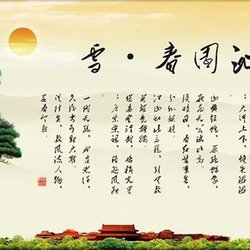 沁園春·雪
河上下，頓失滔滔
山舞銀蛇，原馳蠟象
欲与天公试比高
須晴日，看紅裝素裹
分外妖嬈
江山如此多嬌，引無數
英雄競折腰
惜秦皇漢武，略輸文采
唐宗宋祖，稍遜風騷
一代天驕，成吉思汗
只識彎弓射大雕
俱往矣，數風流人物
還看今朝